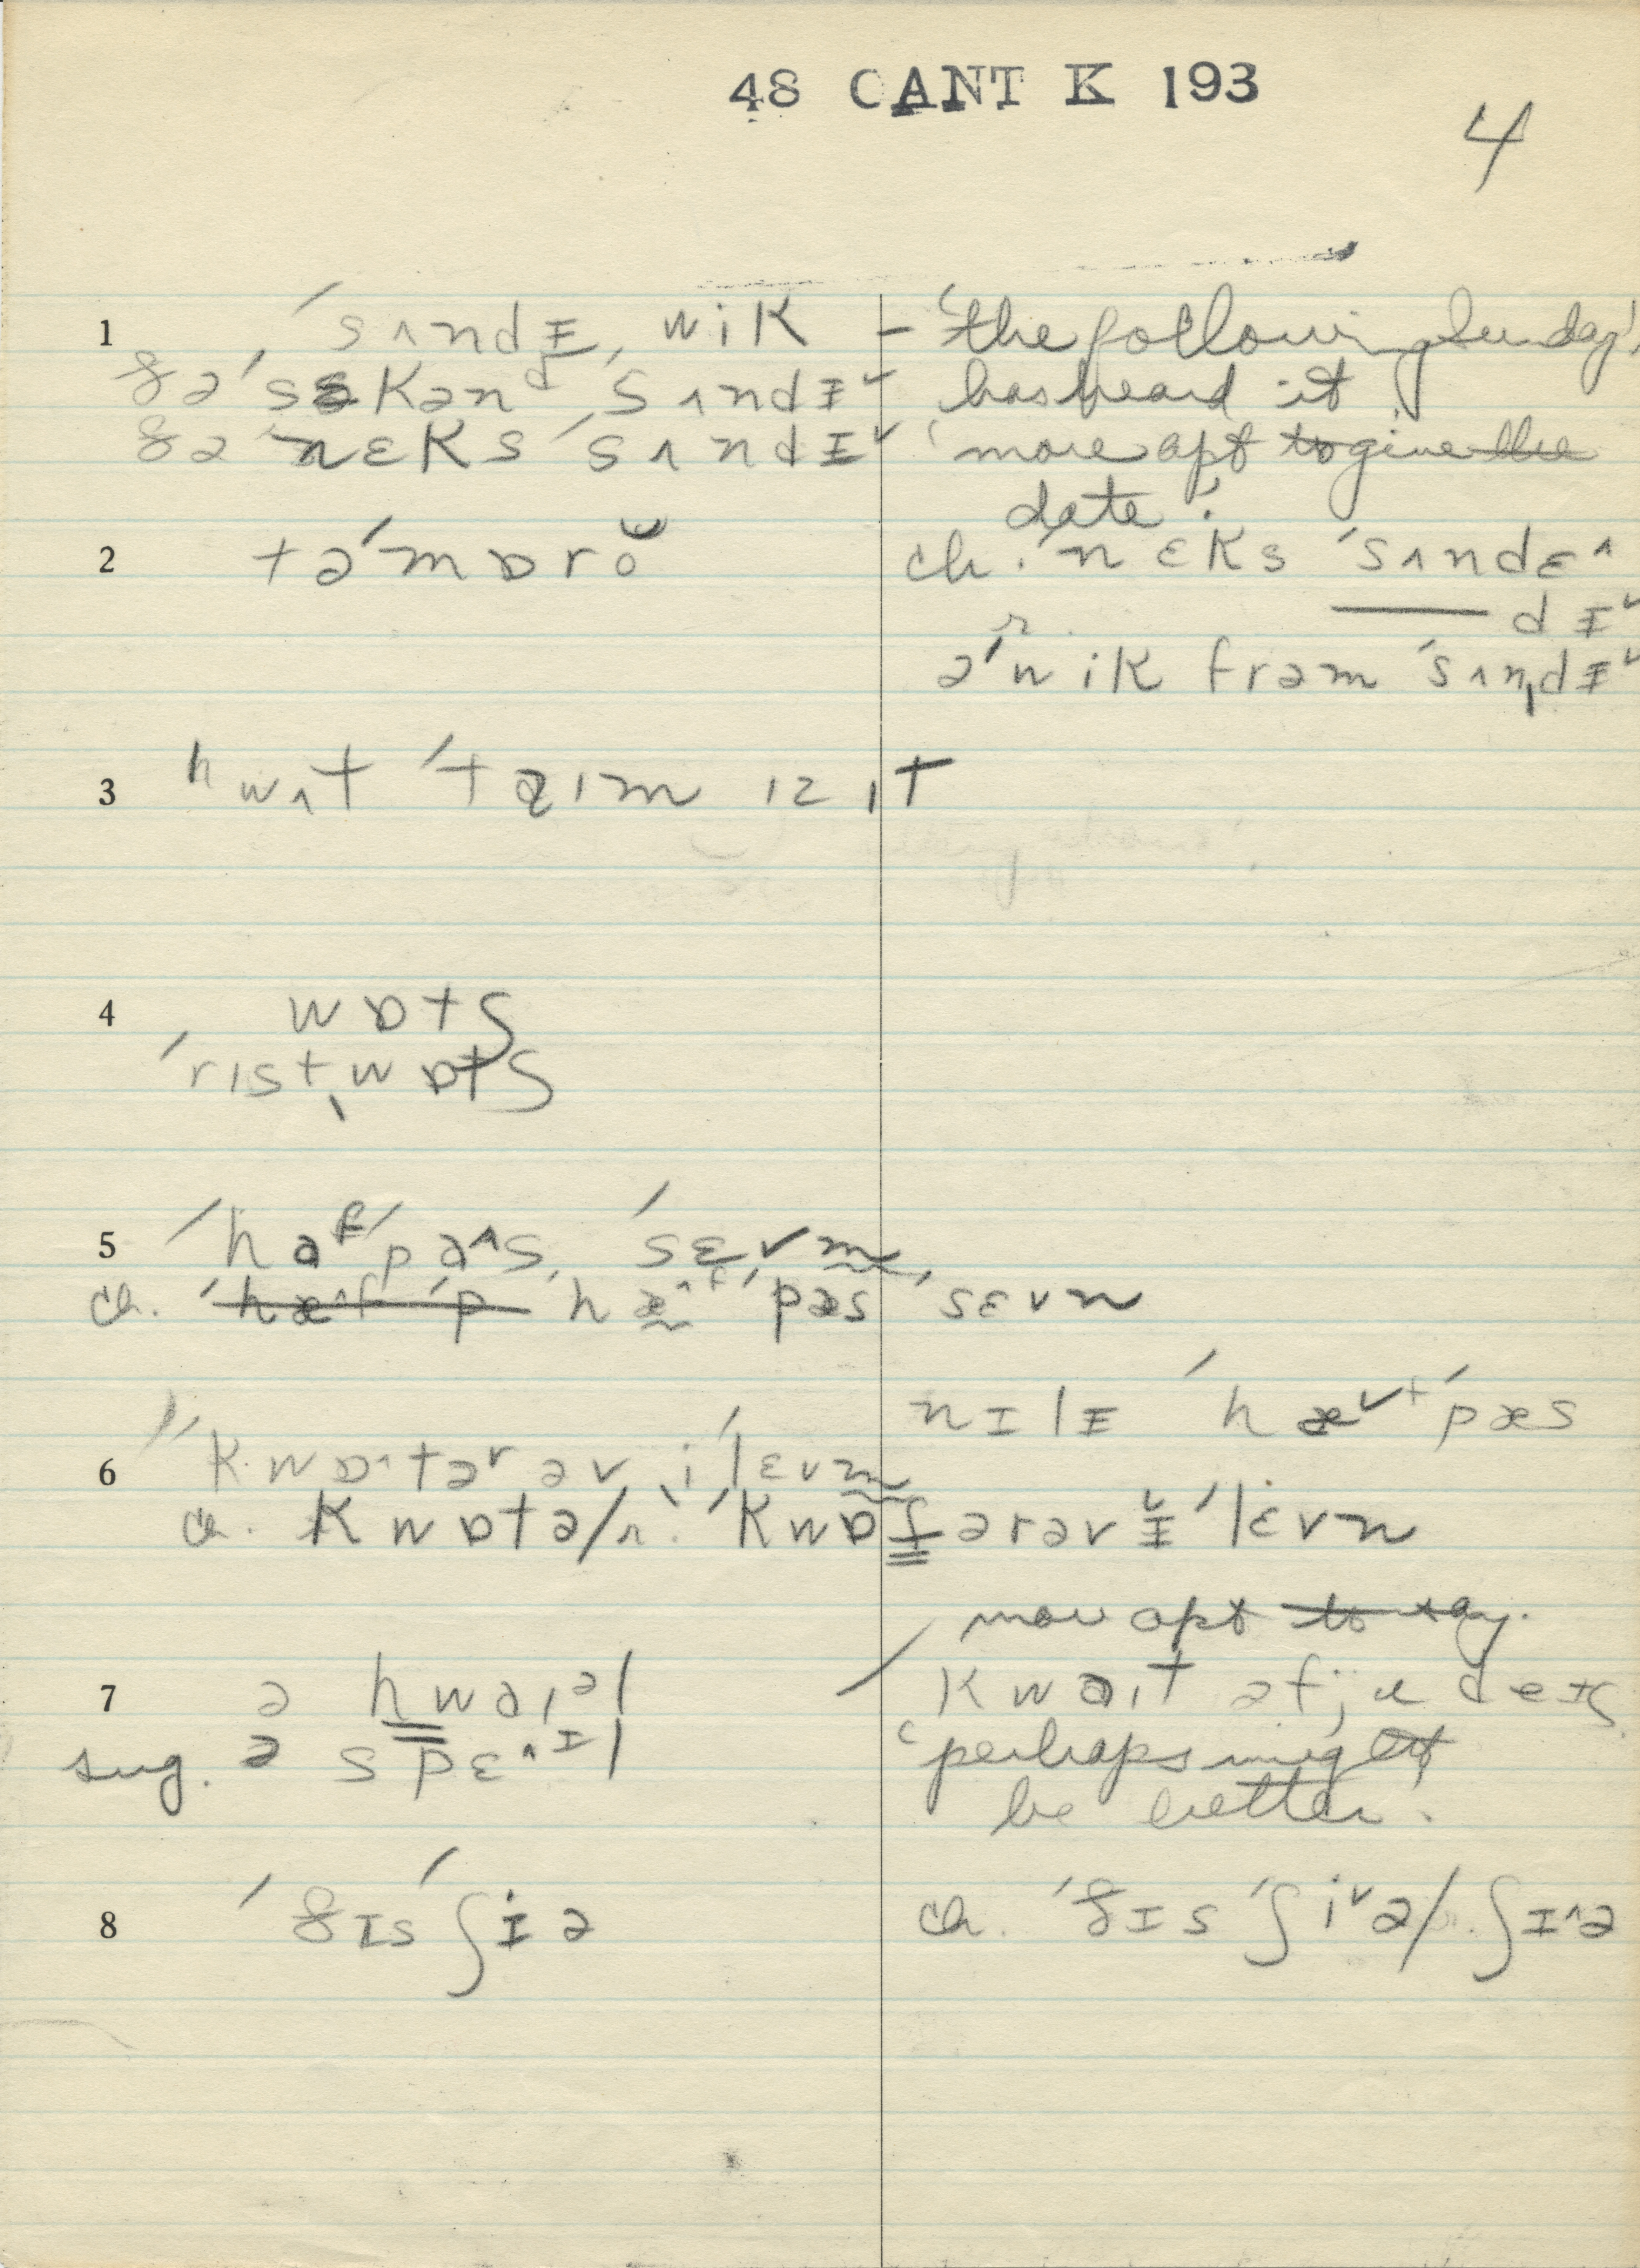 48 CANT K 193
4
1 ˈsʌndᵻ, wik – 'the following Sunday',
ðəˈsɛkənᵈ ˈsʌndᵻ˅ – has heard it
ðəˈnɛks ˈsʌndᵻ˅ 'more apt to give the
date.'
2 təˈmɒrŏ
ch. ˈnɛks ˈsʌndɛ^
—— dᵻ˅
r.
əˈwik frəm ˈsʌn,dᵻ˅
3 ʰwʌt ˈtaɪm ɪz ɪt
4 wɒtʃ
ˈrɪst,wɒtʃ
5 ˈhaᶠˈpa^s, ˈsɛvm̩
ch. ˈhæ^f ˈp hæ^ᶠˈpæs ˈsɛvn
nɪlᵻ ˈhæ˅ᶠˈpæs
6 ˈkwɒ^təʳ əv ,iˈlɛvm̩
ch. kwɒtə/r. ˈkwɒt̬ərəv ᵻ˅ˈlɛvn
more apt to say.
7 ə hwaɪᵊl
kwaɪt ə fju deɪz
sug. ə spɛ^ᶦl
'perhaps might
be better.
8 ˈðɪs ˈʃɪə
ch. ˈðɪs ˈʃi˅ə/r. ʃɪ^ə